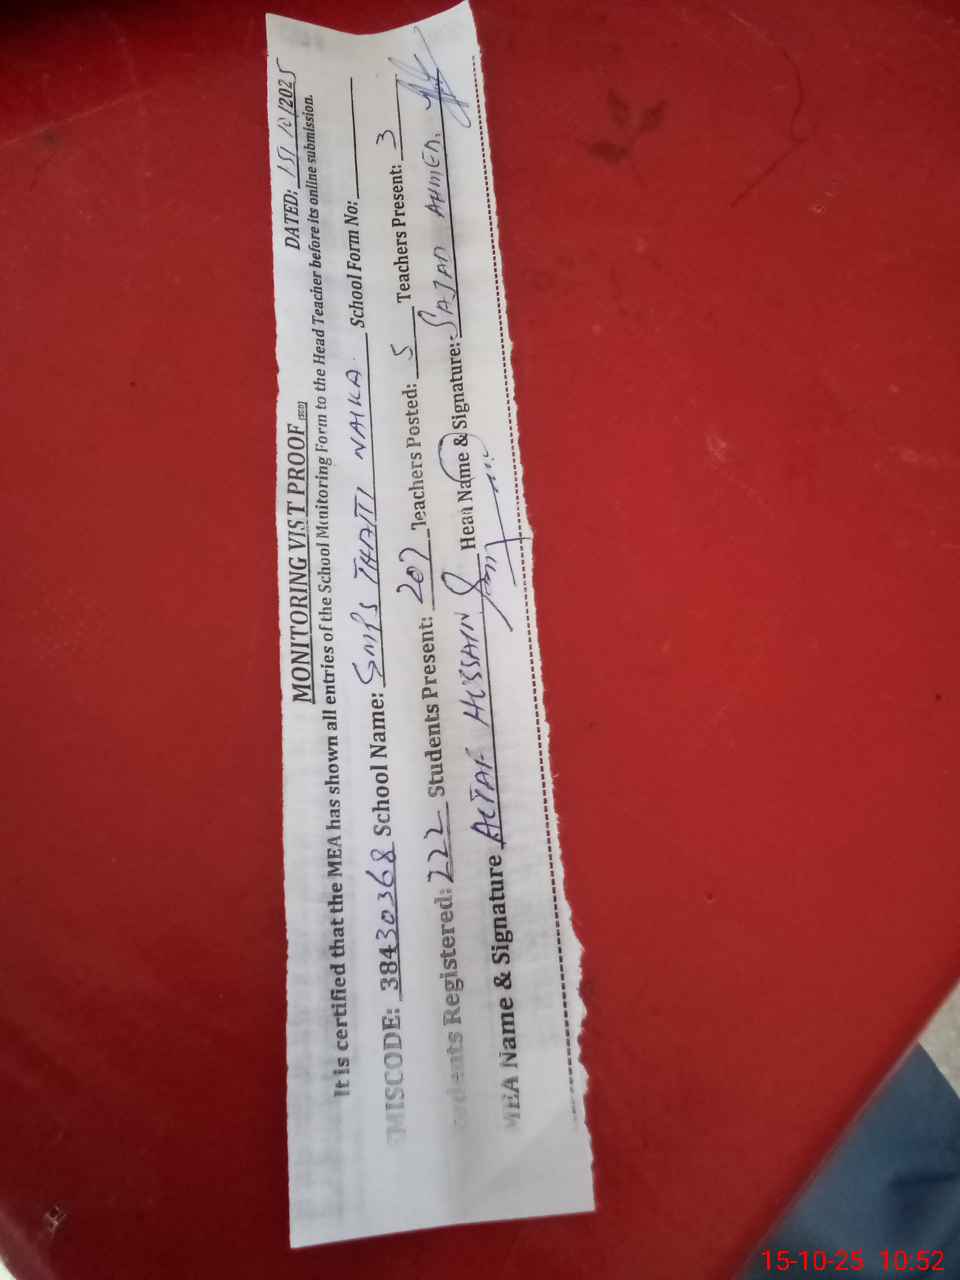 DATED: 15/10/2025
MONITORING VIST PROOF (SED)
It is certified that the MEA has shown all entries of the School Monitoring Form to the Head Teacher before its online submission.
EMISCODE: 38430368 School Name: GMPS THATTI NAIKA. School Form No:
Students Registered: 222 Students Present: 207 Teachers Posted: 5 Teachers Present: 3
MEA Name & Signature ALTAF HUSSAIN Head Name & Signature: SAJAD AHMED.
15-10-25 10:52